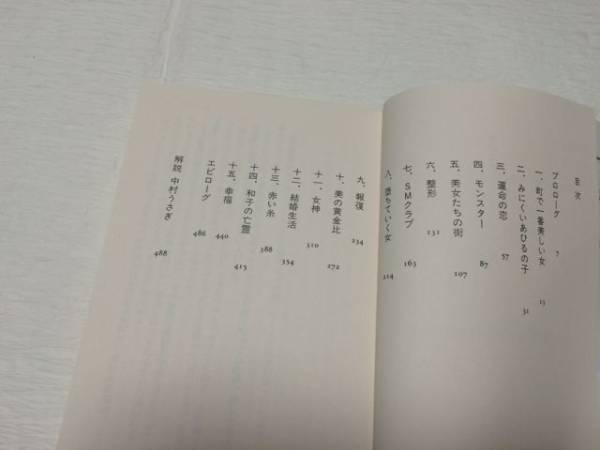 目次
プロローグ 7
一、町で一番美しい女 13
二、みにくいあひるの子 31
三、運命の恋 57
四、モンスター 87
五、美女たちの街 107
六、整形 131
七、SMクラブ 163
八、堕ちていく女 214
九、報復 234
十、美の黄金比 272
十一、女神 310
十二、結婚生活 354
十三、赤い糸 388
十四、和子の亡霊 415
十五、幸福 440
エピローグ 486
解説 中村うさぎ 488